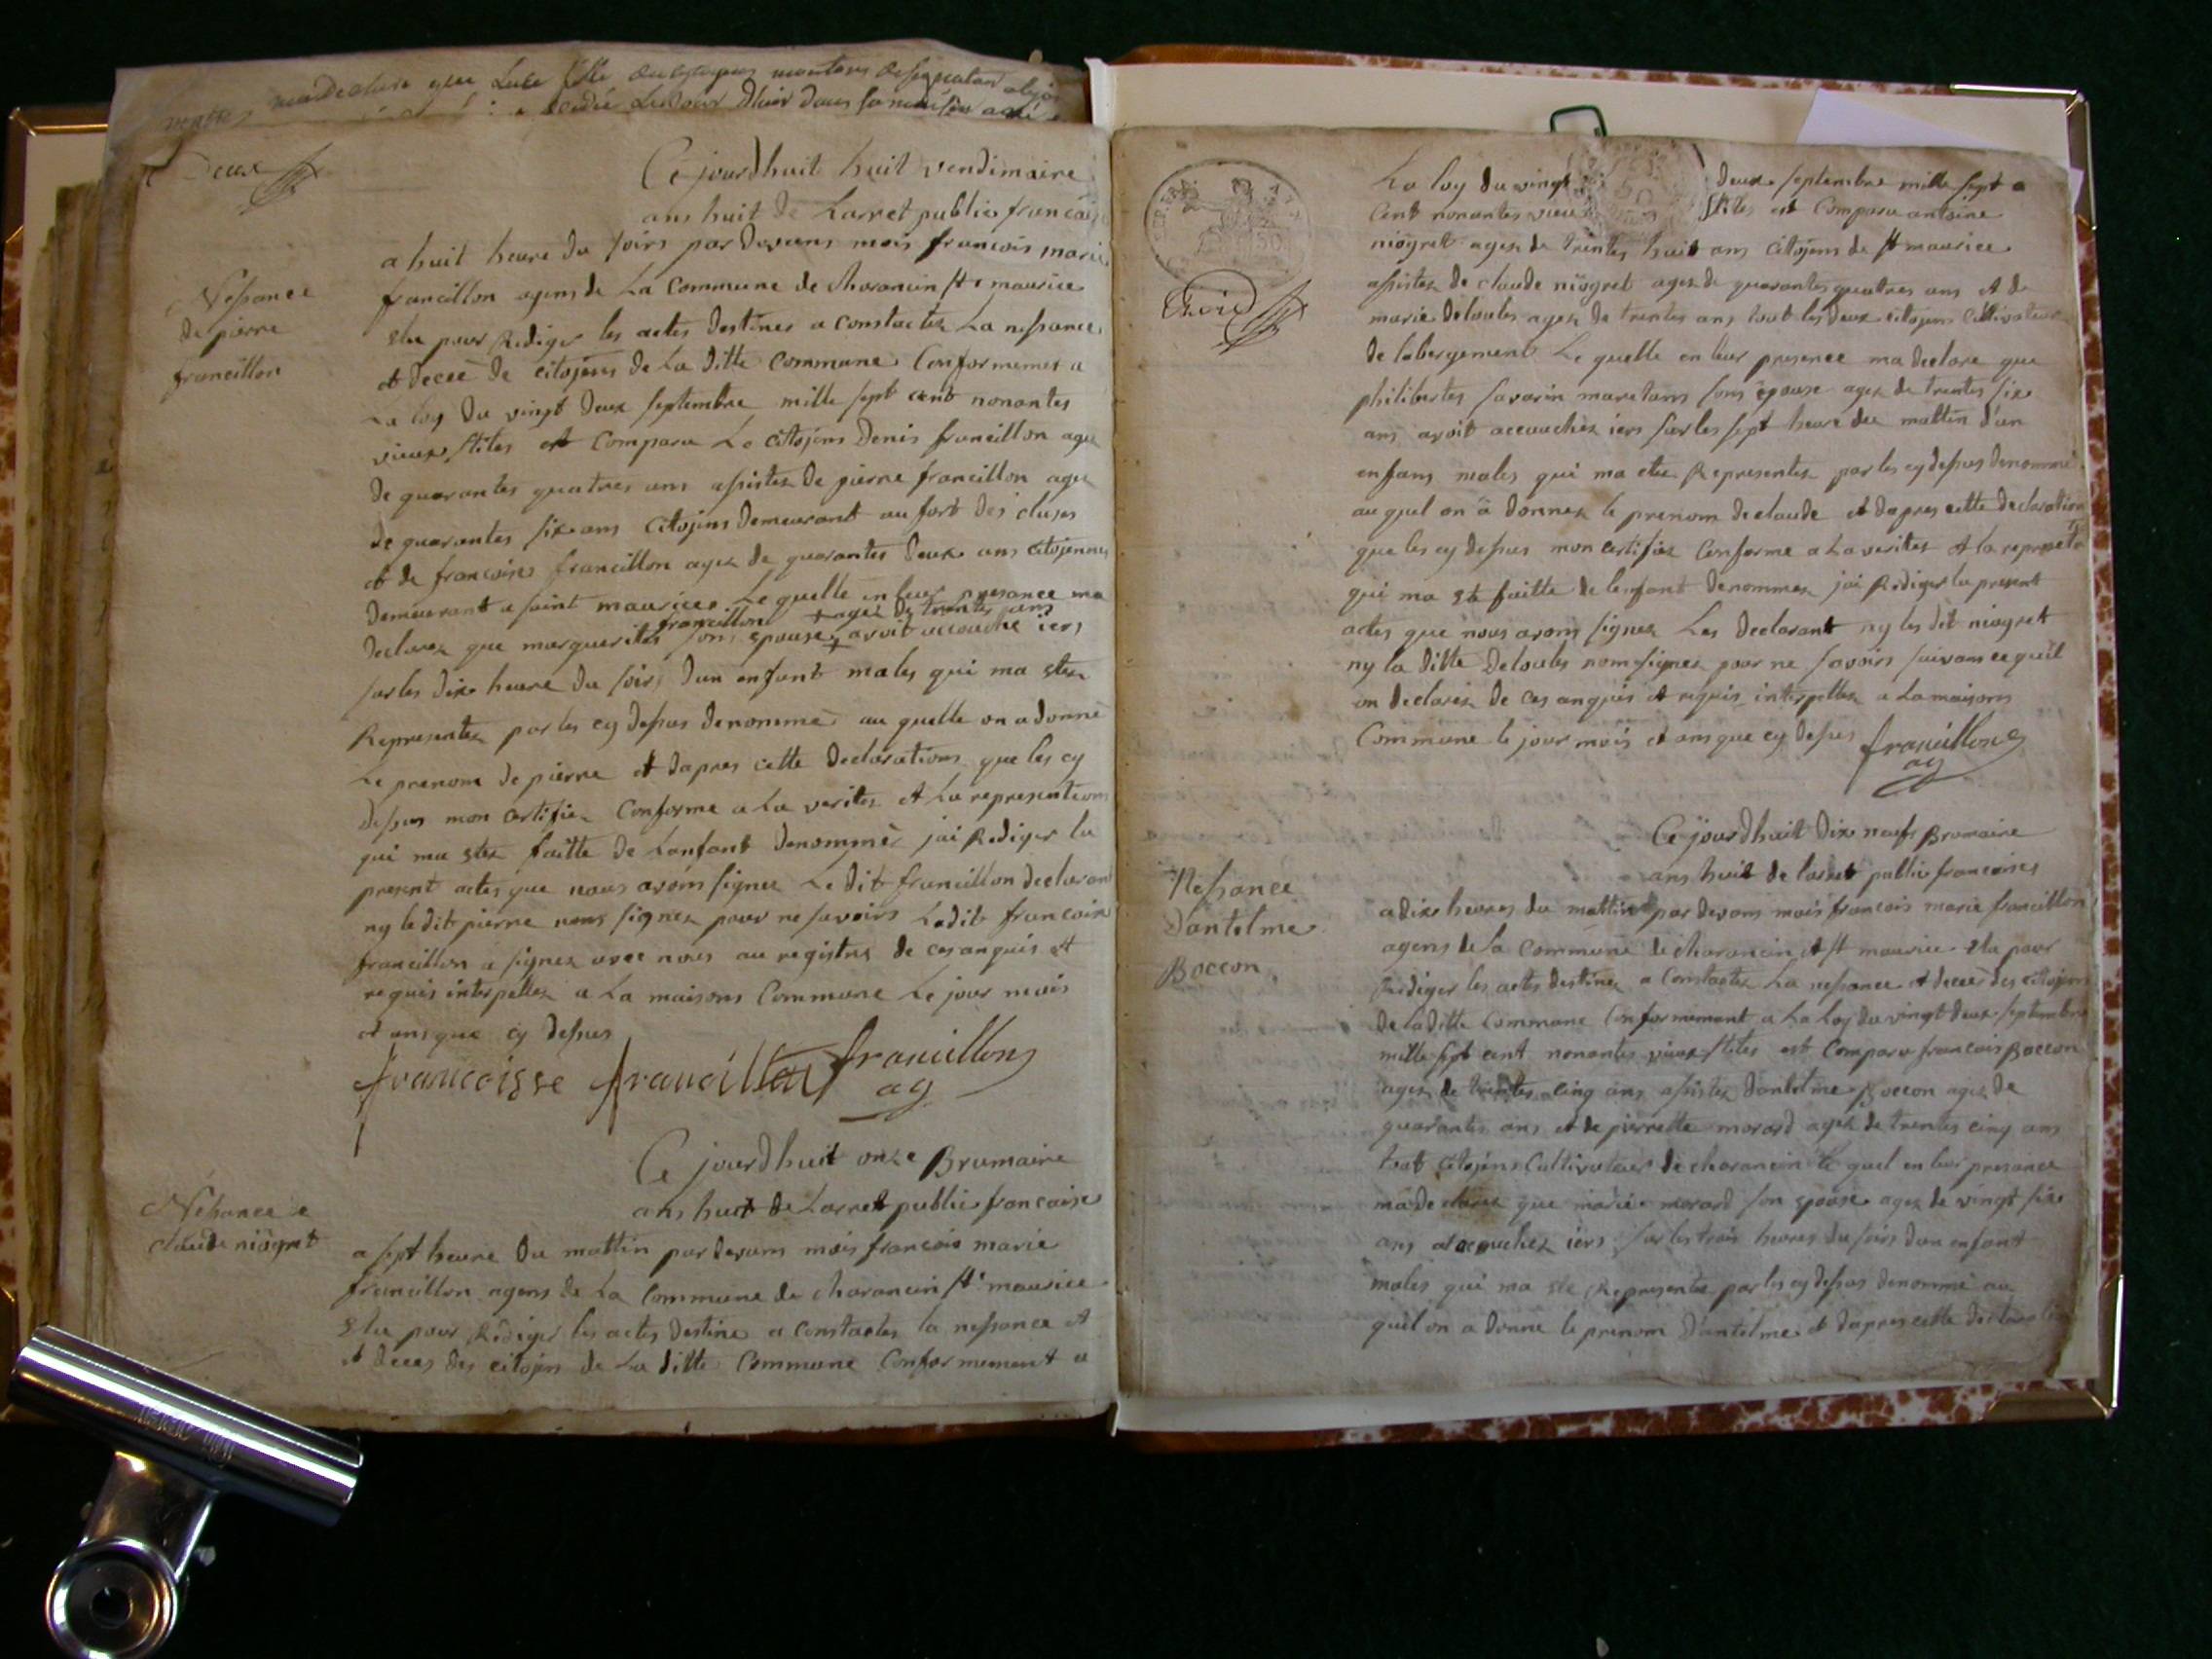 madeclare que
Deux
Ce jourdhuit huit vendimaire
ans huit de Larret public francais
a huit heure du soirs par devans mois francois marie
Nessance
de pierre
francillon
francillon agens de La Commune de charancin st maurice
élu pour Rediger les actes destines a constactez La nessance
et deceé de citojens de La ditte Commune Conformemes a
La loy du vingt deux septembre mille sept cent nonantes
vieux stiles est Comparu Le citojens Denis francillon agé
de quarantes quatres ans assistez de pierre francillon agé
de quarantes six ans Citojens demeurant au fort des cluses
et de francoise francillon agez de quarantes deux ans citojennes
demeurant a saint maurice Le quelle en leur presance ma
francillon + agez de trentes ans
declarez que marguerites sons epouse + avoit accouché iers
sur les dix heure du soirs dun enfant males qui ma etez
Representez par les cy dessus denommé au quelle on a donné
Le prenom de pierre et dapres cette declarations que les cy
dessus mon certifiez Conforme a La veritez et La representions
qui ma etez faitte de Lanfant denommé jai Rediger lu
present actes que nous avons signez Le dit francillon declarant
ny le dit pierre nons signez pour ne savoirs Ladit francoise
francillon a signez avec nous au registre de ces anquis et
requis interpellez a La maisons Commune Le jour mois
et ans que cy dessus
francoisse francillon francillons
ag
Ce jourdhuit onze Brumaire
ans huit de Larret public francaise
Nessance
claude niogret
a sept heure du mattin par devans mois francois marie
francillon agens de La Commune de charancin st maurice
élu pour Rediger les actes destine a constactes la nessance et
et deces des citojen de La ditte Commune Conformement a
Trois
La loy du vingt deux septembre mille sept
Cent nonantes vieux stiles est Comparu antoine
niogret agez de trentes huit ans Citojens de st maurice
assistez de claude niogret agez de quarantes quatres ans et de
marie deloules agez de trentes ans tout les deux citojens Cultivateur
de labergement Le quelle en leur presence ma declare que
philibertes savarin maretans sons epouse agez de trentes six
ans avoit accouchez iers sur les sept heure du mattin d'un
enfans males qui ma etez Representez par les cy dessus denommé
au quel on a donnez le prenom de claude et dapres cette declaration
que les cy dessus mon certifiez Conforme a La veritez et la represetion
qui ma etz faitte de lenfant denommez jai Rediger lu present
actes que nous avons signez Les declarant ny les dit niogret
ny la ditte Deloules nom signez pour ne savoirs suivans ce quil
on declarez de ces anquis et requis interpellez a La maisons
Commune le jour mois et ans que cy dessus francillons
ag
Ce jourdhuit dix neuf Brumaire
ans huit de larret public francaises
Nessance
d'antelme
Boccon
a dix heures du mattin par devans mois francois marie francillon
agens de la Commune de charancin et st maurice elu pour
Rediger les actes destinez a Constactez La nessance et deceé des citojens
de La ditte Commune Conformément a La Loy du vingt deux septembre
mille sept cent nonantes vieux stiles est Comparu francois Boccon
agez de trentes cinq ans assistez d'antelme Boccon agez de
quarantes ans et de pierrette morard agez de trentes cinq ans
tout citojens Cultivateur de charancin le quel en leur presance
ma declarez que marie morard son epouse agez de vingt six
ans a accouchez iers sur les trois heures du soirs dun enfant
males qui ma ete Representez par les cy dessus denommé au
quil on a donne le prenom d'antelme et dapres cette declaration